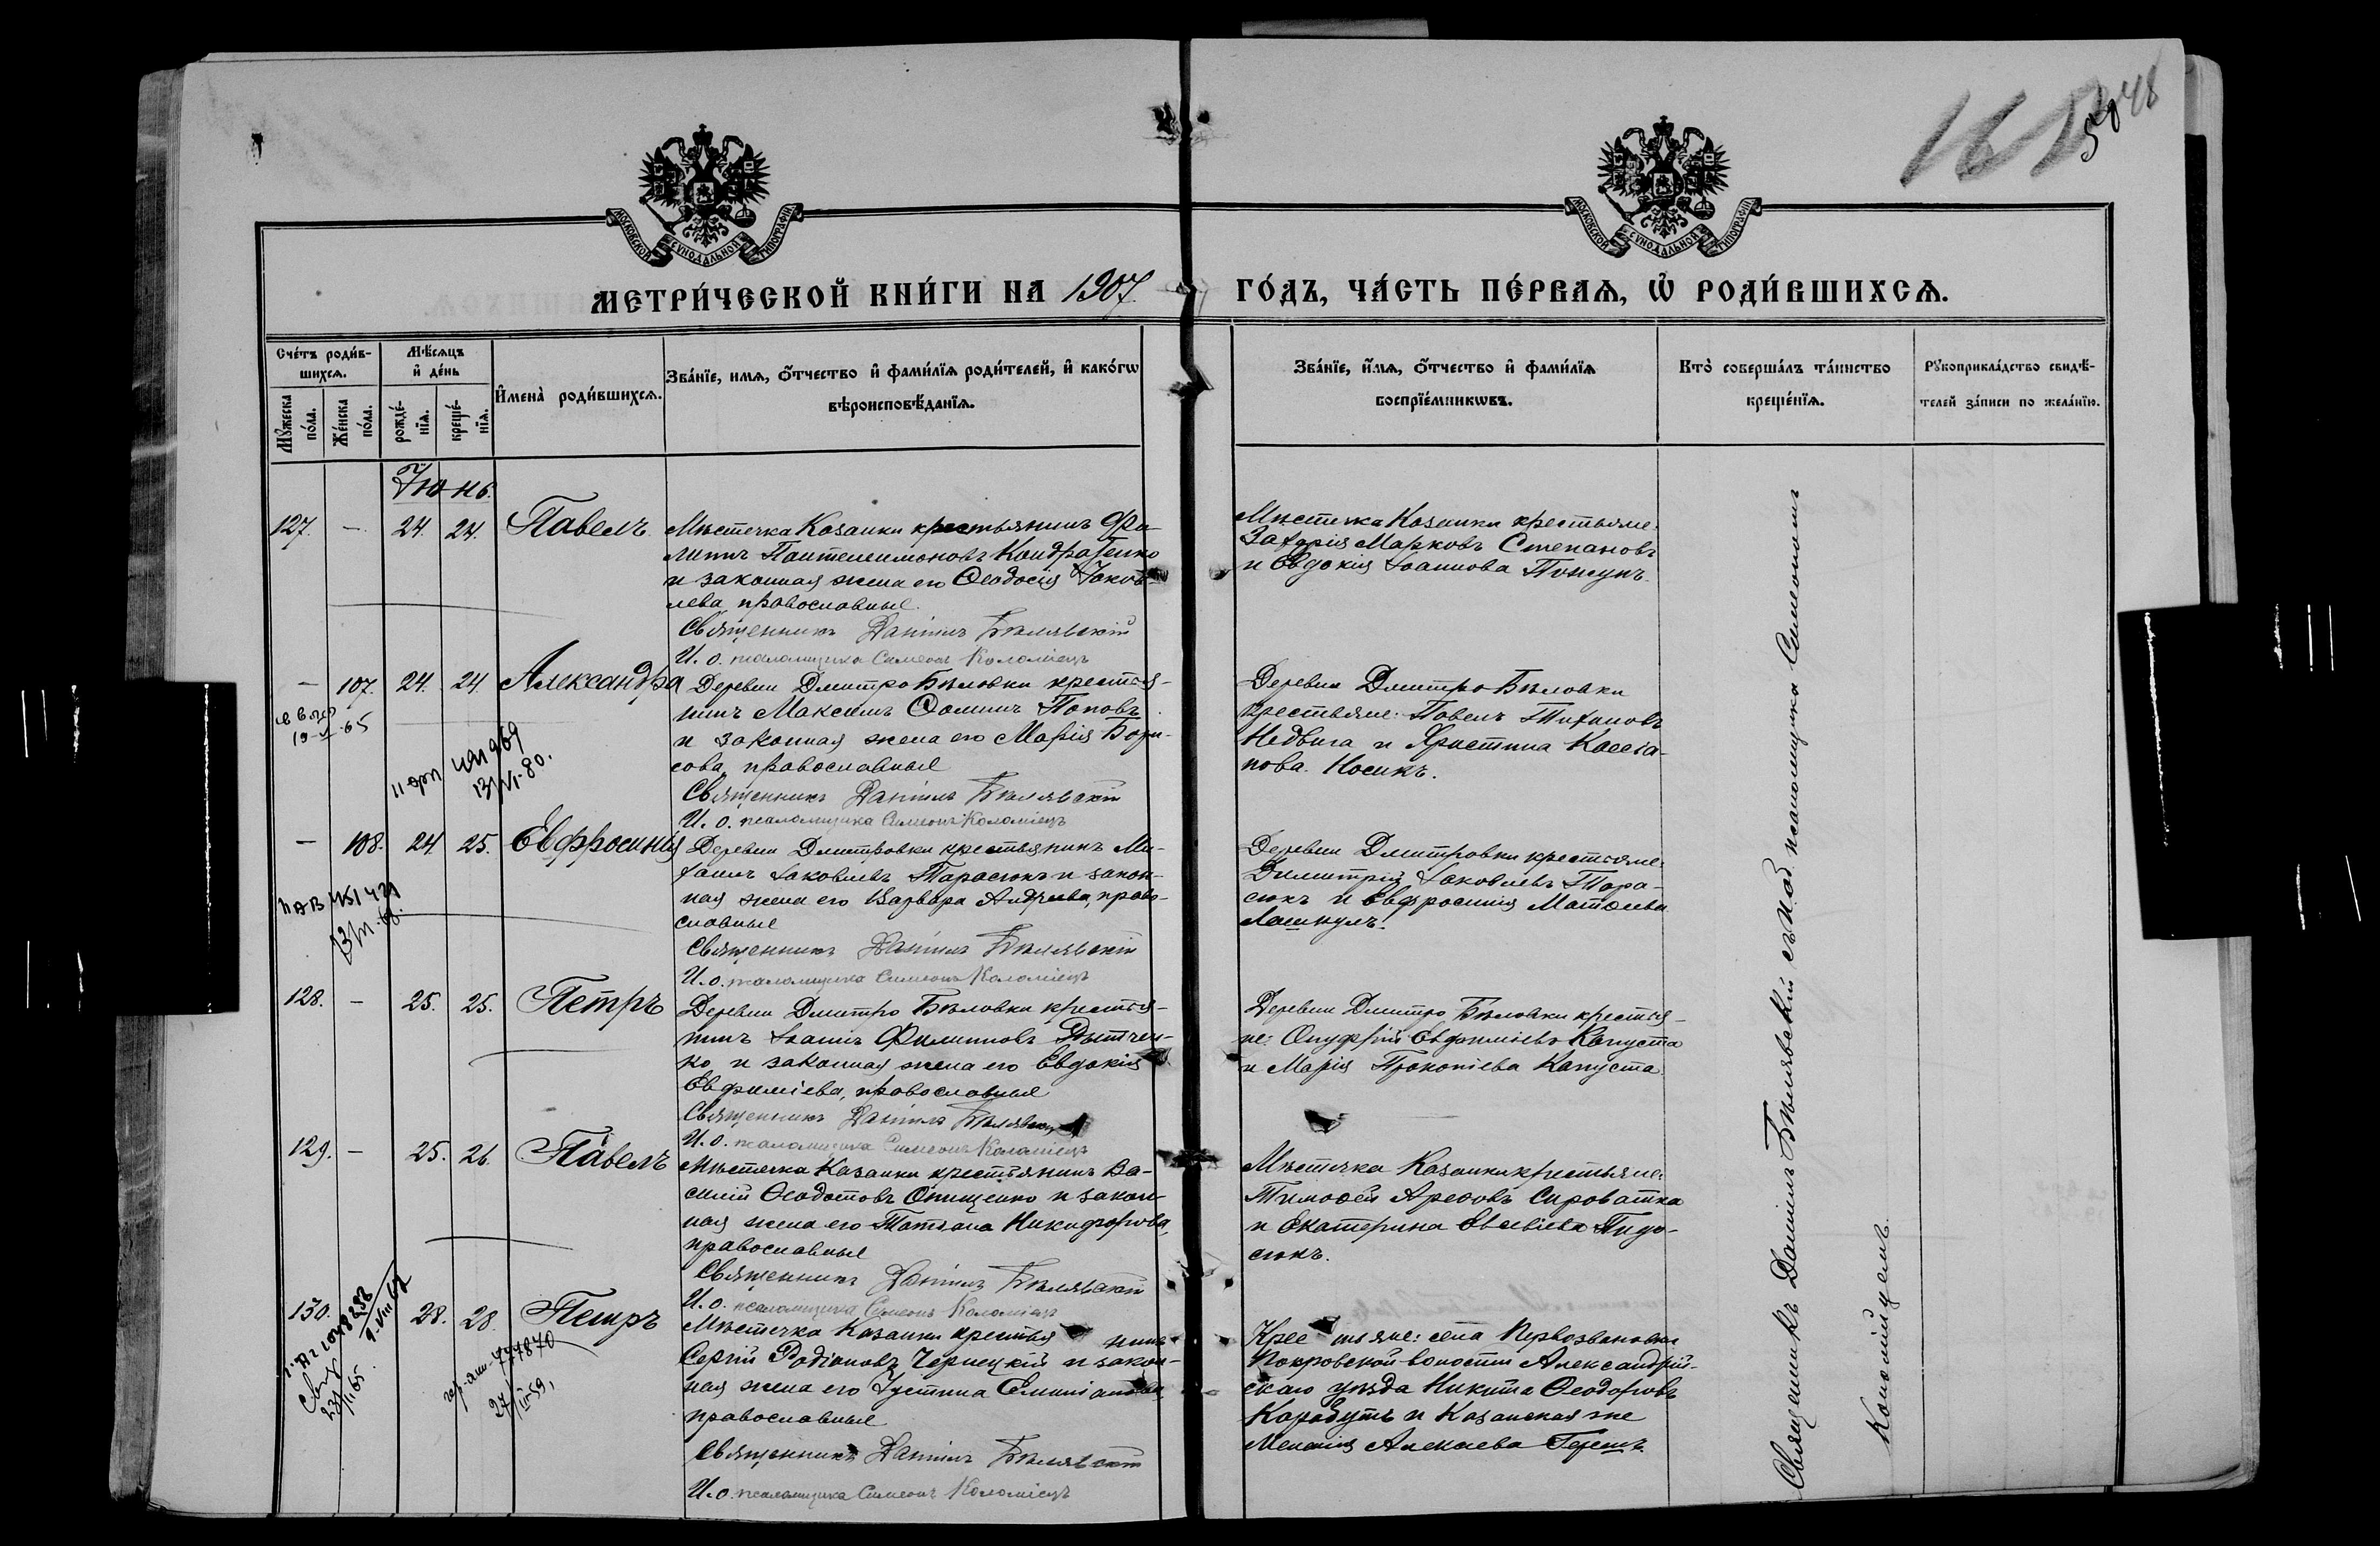 МОСКОВСКОЙ СѴНОДАЛЬНОЙ ТИПОГРАФІИ
МОСКОВСКОЙ СѴНОДАЛЬНОЙ ТИПОГРАФІИ
МЕТРИ́ЧЕСКОЙ КНИ́ГИ НА 1907 ГО́ДЪ, ЧА́СТЬ ПЕ́РВАѦ, Ѡ҆ РОДИ́ВШИХСѦ.
Сче́тъ роди́в-
шихсѧ.
Мꙋ́жеска по́ла.
Же́нска по́ла.
Мѣ́сѧцъ
и҆ де́нь
рожде́-
нїѧ.
креще́-
нїѧ.
И҆мена̀ роди́вшихсѧ.
Зва́нїе, имѧ, ѻ҆́тчество и҆ фами́лїѧ роди́телей, и҆ како́гѡ
вѣроисповѣ́данїѧ.
Зва́нїе, и҆́мѧ, ѻ҆́тчество и҆ фами́лїѧ
воспрїе́мникѡвъ.
Кто̀ соверша́лъ та́инство
креще́нїѧ.
Рꙋкоприкла́дство свидѣ́-
телей за́писи по жела́нїю.
Іюнь.
127. — 24. 24. Павелъ.
Мѣстечка Казанки крестьянинъ Фи-
липпъ Пантелеимоновъ Кондратенко
и законная жена его Ѳеодосія Іаков-
лева, православные.
Священникъ Даніилъ Бѣлявскій
И. о. псаломщика Симеонъ Коломіецъ
Мѣстечка Казанки крестьяне:
Захарія Марковъ Степановъ
и Евдокія Іоаннова
— 107. 24. 24. Александра
Деревни Дмитро Бѣловки крестья-
нинъ Максимъ Ѳоминъ Поповъ
и законная жена его Марія Бори-
сова, православные
Священникъ Даніилъ Бѣлявскій
И. о. псаломщика Симеонъ Коломіецъ
Деревни Дмитро Бѣловки
крестьяне: Павелъ Тихоновъ
Недвига и Христина Кассіа-
нова Носикъ.
— 108. 24. 25. Евфросинія
Деревни Дмитровки крестьянинъ Ми-
хаилъ Іаковлевъ Тарасюкъ и закон-
ная жена его Варвара Андреева, право-
славные
Священникъ Даніилъ Бѣлявскій
И. о. псаломщика Симеонъ Коломіецъ
Деревни Дмитровки крестьяне:
Димитрій Іаковлевъ Тара-
сюкъ и Евфросинія Матѳеева
128. — 25. 25. Петръ
Деревни Дмитро Бѣловки крестья-
нинъ Іоаннъ Филипповъ
ко и законная жена его Евдокія
Евфиміева, православные
Священникъ Даніилъ Бѣлявскій
И. о. псаломщика Симеонъ Коломіецъ
Деревни Дмитро Бѣловки крестья-
не: Онуфрій Евфиміевъ Капуста
и Марія Прокопіева Капуста.
129. — 25. 26. Павелъ
Мѣстечка Казанки крестьянинъ Ва-
силій Ѳеодотовъ Онищенко и закон-
ная жена его Татіана Никифорова,
православные
Священникъ Даніилъ Бѣлявскій
И. о. псаломщика Симеонъ Коломіецъ
Мѣстечка Казанки крестьяне:
Тимоѳей Ареѳовъ Сироватка
и Екатерина Евсевіева
сюкъ.
130. 28. 28. Петръ
Мѣстечка Казанки крестьянинъ
Сергій Родіоновъ Чернецкій и закон-
ная жена его Іустина Емиліанова,
православные
Священникъ Даніилъ Бѣлявскій
И. о. псаломщика Симеонъ Коломіецъ
Крестьяне: села Первозвановки
Покровской волости Александрій-
скаго уѣзда Никита Ѳеодоровъ
Карабутъ и Казанская же
Меланія Алексѣева
Священникъ Даніилъ Бѣлявскій съ и. об. псаломщика Симеономъ
Коломійцемъ.